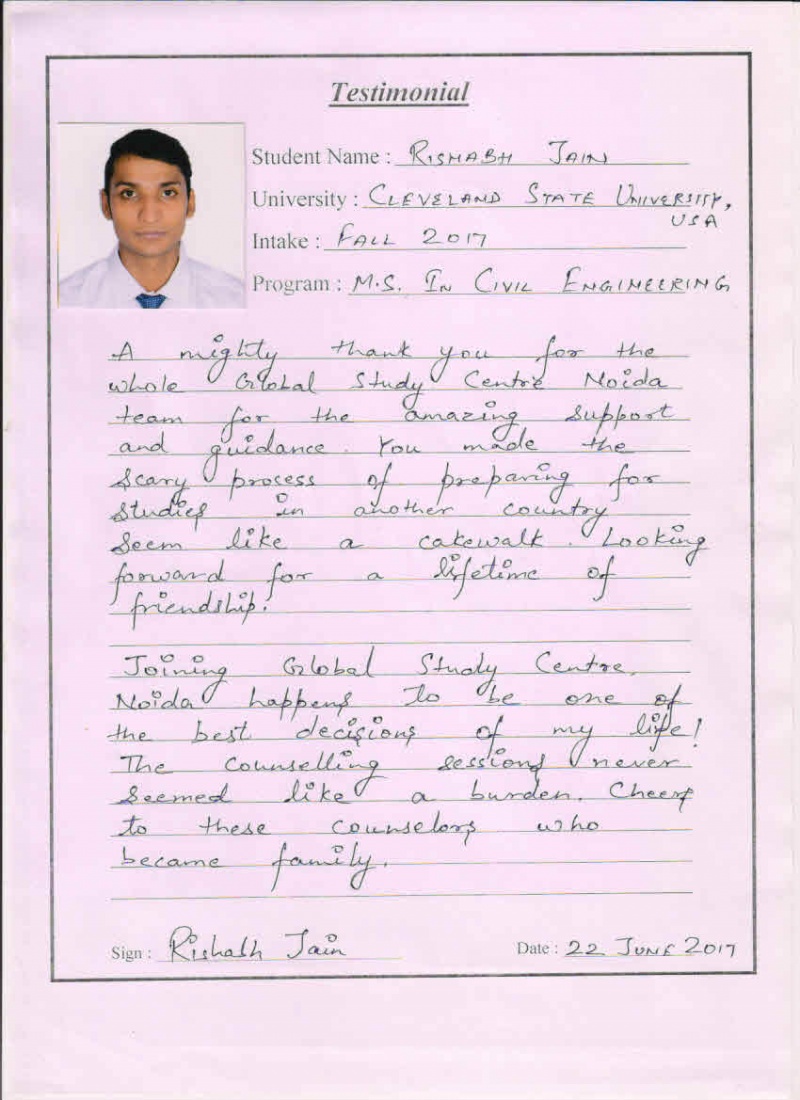 Testimonial
Student Name : RISHABH JAIN
University : CLEVELAND STATE UNIVERSITY,
USA
Intake : FALL 2017
Program : M.S. IN CIVIL ENGINEERING
A mighty thank you for the
whole Global Study Centre Noida
team for the amazing support
and guidance. You made the
scary process of preparing for
studies in another country
seem like a cakewalk. Looking
forward for a lifetime of
friendship!
Joining Global Study Centre,
Noida happens to be one of
the best decisions of my life!
The counselling sessions never
seemed like a burden. Cheers
to these counselors who
became family.
Sign : Rishabh Jain
Date : 22 JUNE 2017